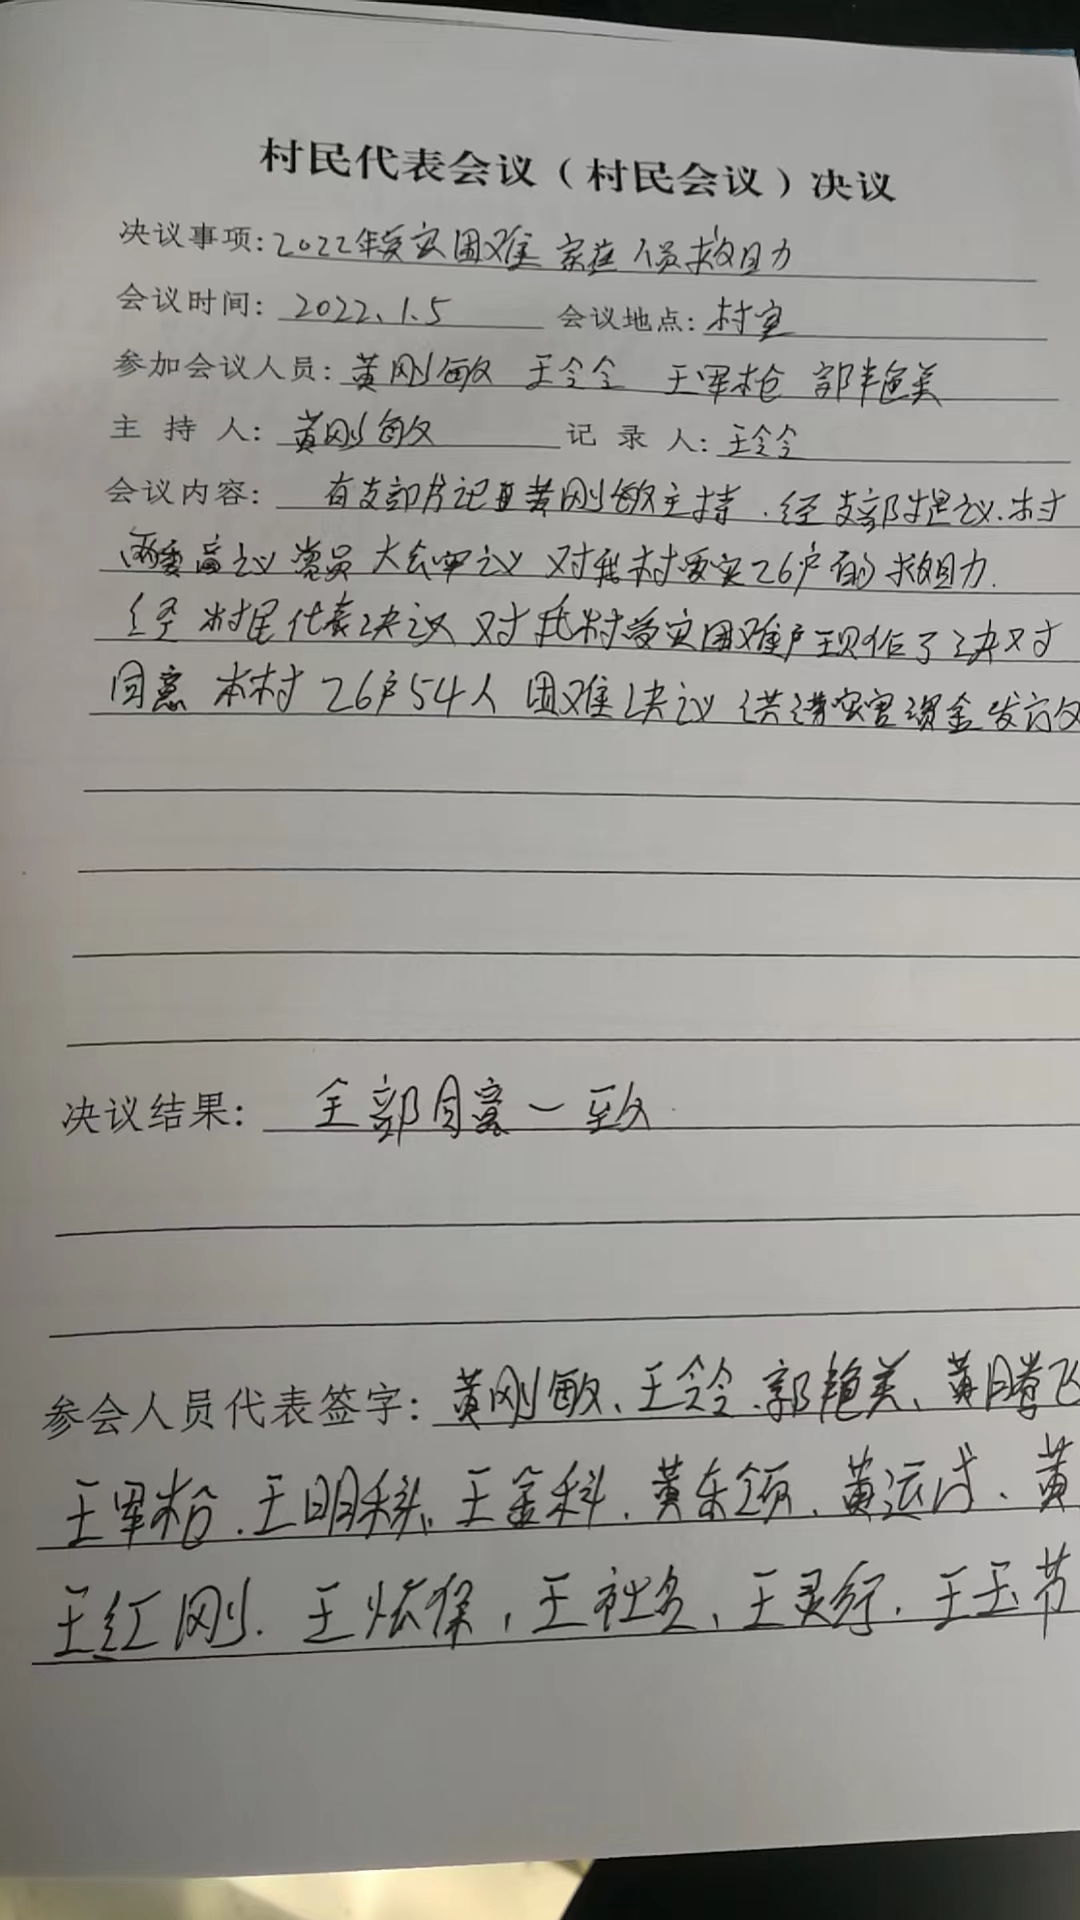 村民代表会议（村民会议）决议
决议事项：2022年受灾困难家庭人员救助
会议时间：2022.1.5 会议地点：村室
参加会议人员：黄刚敏 王令令 王军枪 郭艳美
主持人：黄刚敏 记录人：王令令
会议内容：有支部书记黄刚敏主持.经支部提议.村
两委商议 党员大会审议 对我村受灾26户的救助.
经村民代表决议 对我村受灾困难户现作了决对
同意 本村26户54人困难决议 洪涝灾害资金发放
决议结果：全部同意一致.
参会人员代表签字：黄刚敏、王令令.郭艳美、黄腾飞
王军枪.王明科.王金科.黄东领.黄运成.黄
王红刚.王怀保，王社名、王灵行.王玉节